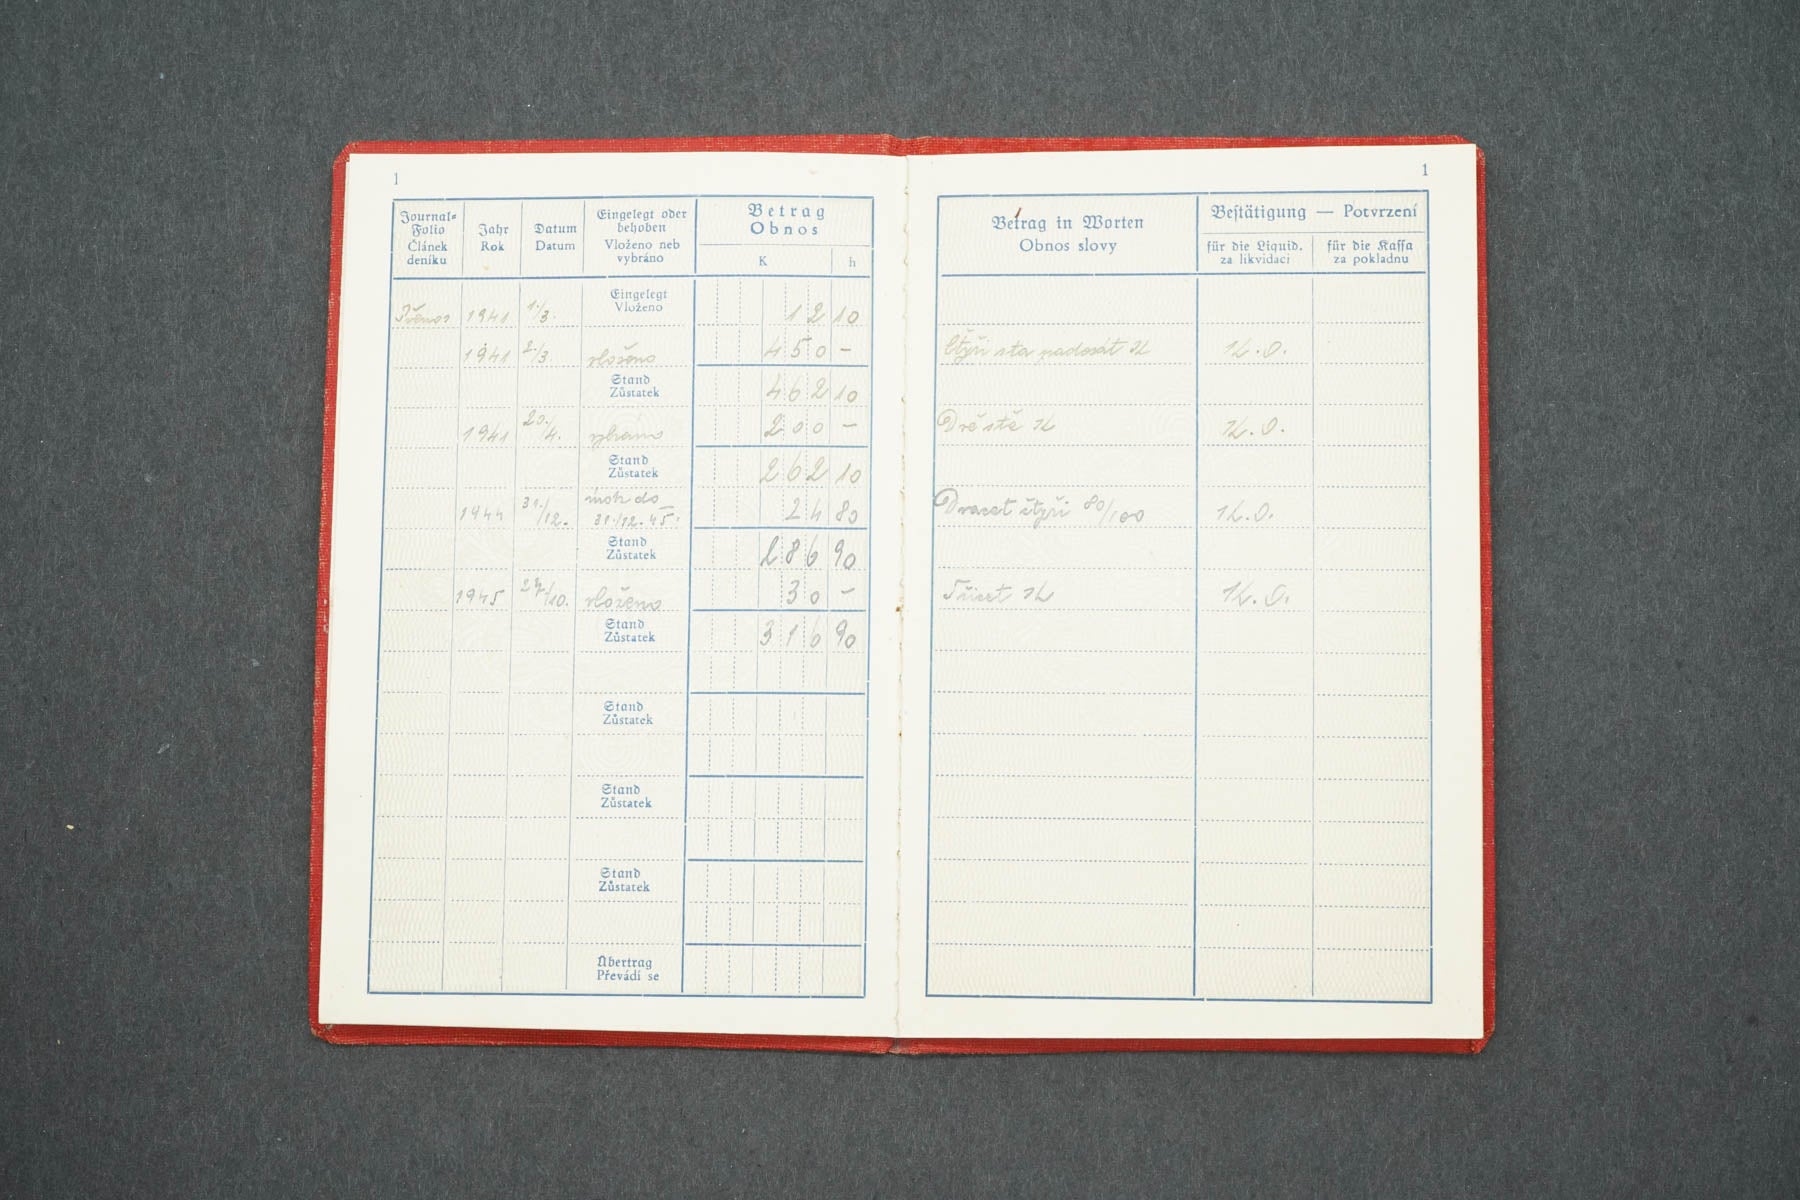 1
Journal-
Folio
Článek
deníku
Jahr
Rok
Datum
Datum
Eingelegt oder
behoben
Vloženo neb
vybráno
Betrag
Obnos
K
h
Přenos 1941 1./3. Eingelegt
Vloženo
12 10
1941 2./3. vloženo 450 –
Stand
Zůstatek
462 10
1941 20./4. vybráno 200 –
Stand
Zůstatek
262 10
1944 31./12. úrok do
31./12. 45. 24 80
Stand
Zůstatek
286 90
1945 27./10. vloženo 30 –
Stand
Zůstatek
316 90
Stand
Zůstatek
Stand
Zůstatek
Stand
Zůstatek
Übertrag
Převádí se
1
Betrag in Worten
Obnos slovy
Bestätigung — Potvrzení
für die Liquid.
za likvidaci
für die Kassa
za pokladnu
Čtyři sta padesát K
Dvě stě K
Dvacet čtyři 80/100
Třicet K